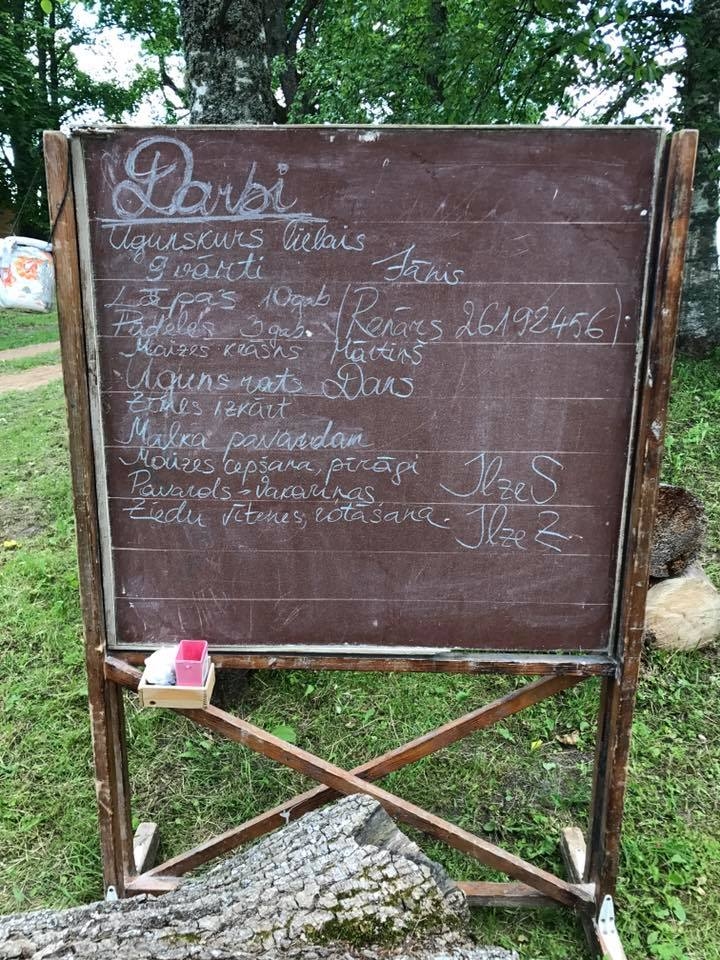 Darbi
Ugunskurs lielais
9 vārti Jānis
Lāpas 10gab (Renārs 26192456).
Pūdeles 3gab.
Maizes krāsns Mārtiņš
Uguns rats Dans
Zīmes izkārt
Malka pavardam
Maizes cepšana, pīrāgi Ilze S
Pavards - Vakariņas
Ziedu vītenes, rotāšana. Ilze Z.